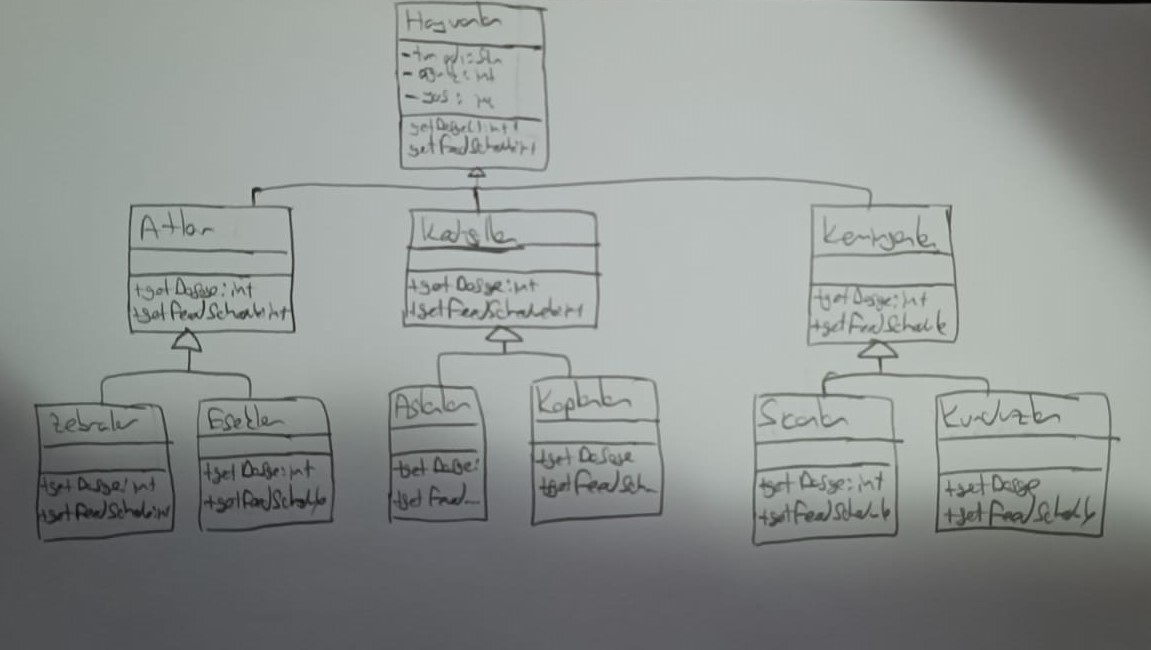 Hayvanlar
- ağırlık: int
- yaş: int
getDosge(): int
getFeedSchedule: int
Atlar
+getDosge: int
+getFeedSchedule: int
Kedigiller
+getDosge: int
+getFeedSchedule: int
Kemirgenler
+getDosge: int
+getFeedSchedule
Zebralar
+getDosge: int
+getFeedSchedule: int
Eşekler
+getDosge: int
+getFeedSchedule
Aslanlar
+getDosge:
+getFeed_
Kaplanlar
+getDosage
+getFeedSch_
Sıçanlar
+getDosge: int
+getFeedSchedule
Kunduzlar
+getDosge
+getFeedSchedule